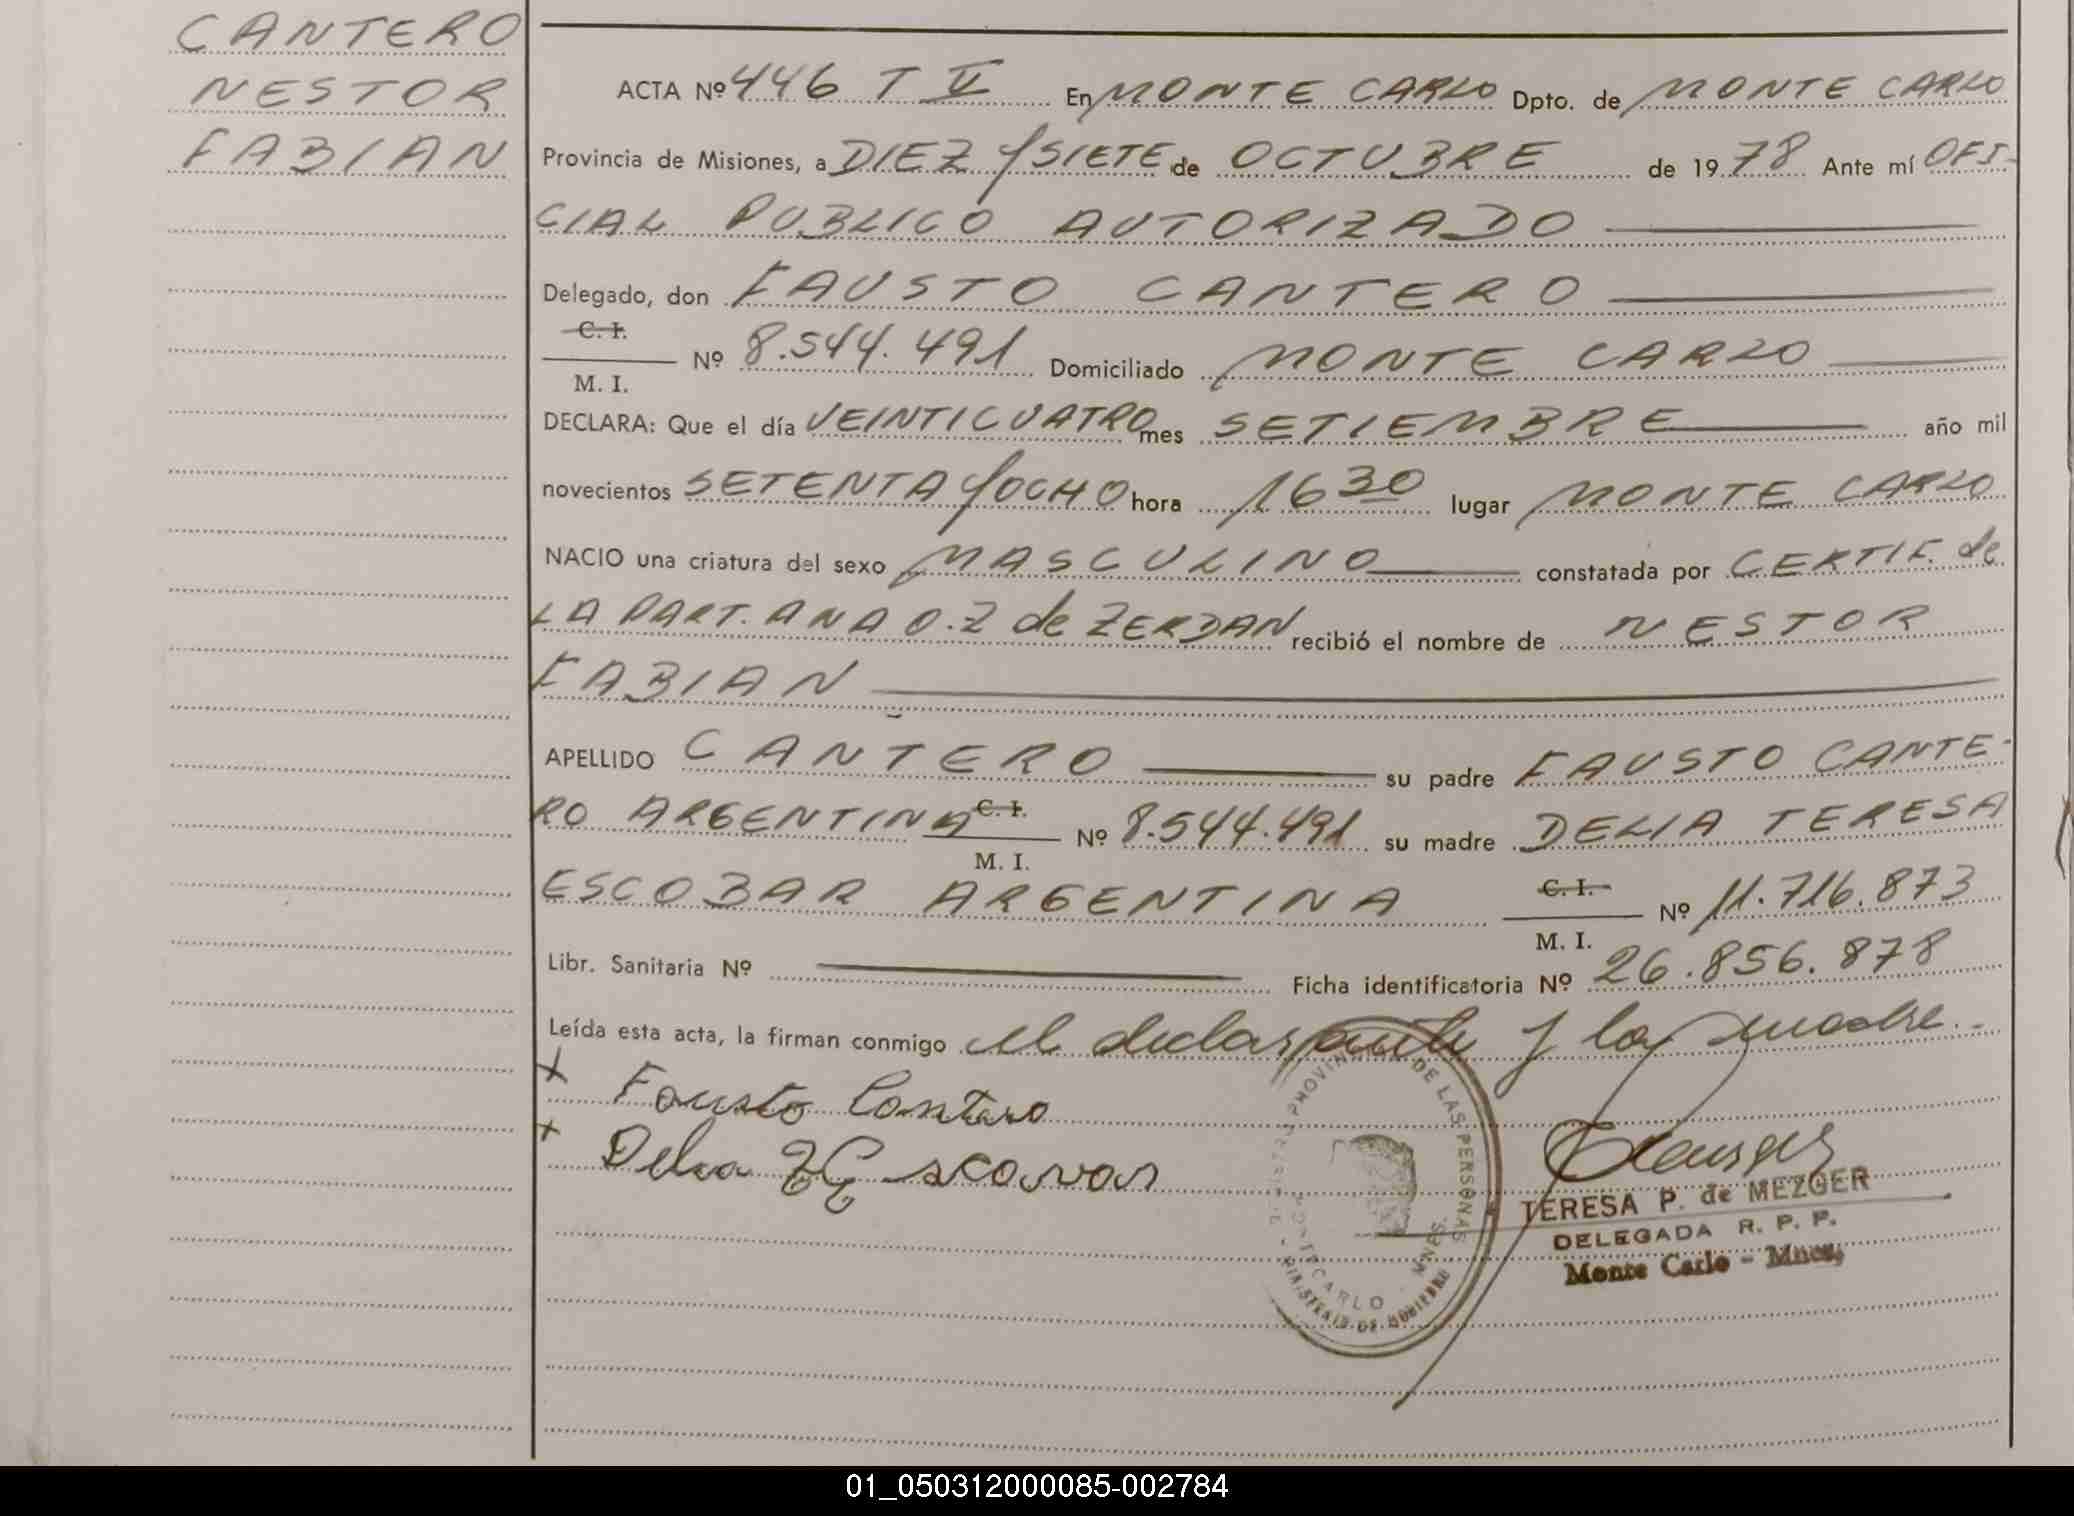 CANTERO
NESTOR
FABIAN
ACTA Nº 446 T V En MONTE CARLO Dpto. de MONTE CARLO
Provincia de Misiones, a DIEZ Y SIETE de OCTUBRE de 1978 Ante mí OFI-
CIAL PUBLICO AUTORIZADO
Delegado, don FAUSTO CANTERO
C. I.
M. I. Nº 8.544.491 Domiciliado MONTE CARLO
DECLARA: Que el día VEINTICUATRO mes SETIEMBRE año mil
novecientos SETENTA Y OCHO hora 1630 lugar MONTE CARLO
NACIO una criatura del sexo MASCULINO constatada por CERTIF. de
LA PART. ANA O. Z de ZERDAN recibió el nombre de NESTOR
FABIAN
APELLIDO CANTERO su padre FAUSTO CANTE-
RO ARGENTINA C. I. M. I. Nº 8.544.491 su madre DELIA TERESA
ESCOBAR ARGENTINA C. I. M. I. Nº 11.716.873
Libr. Sanitaria Nº Ficha identificatoria Nº 26.856.878
Leída esta acta, la firman conmigo el declarante y la madre.-
x Fausto Cantero
+ Delia
TERESA P. de MEZGER
DELEGADA R. P. P.
Monte Carlo - Mnes,
DE LAS PERSONAS
MINISTERIO DE GOBIERNO
MONTECARLO MNES.
01_050312000085-002784